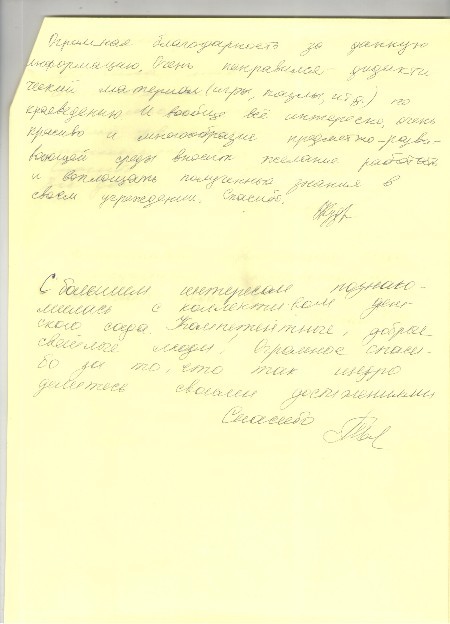 Огромная благодарность за данную
информацию. Очень понравился дидакти
ческий материал (игры, пазлы, ит.д.) по
краеведению и вообще всё интересно, очень
красиво и многообразие предметно-разви-
вающей среды вносит желание работать
и воплощать полученные знания в
своем учреждении. Спасибо.
С большим интересом познако-
мились с коллективом дет-
ского сада. Компетентные, добрые,
светлые люди. Огромное спаси-
бо за то, что так щедро
делитесь своими достижениями
Спасибо